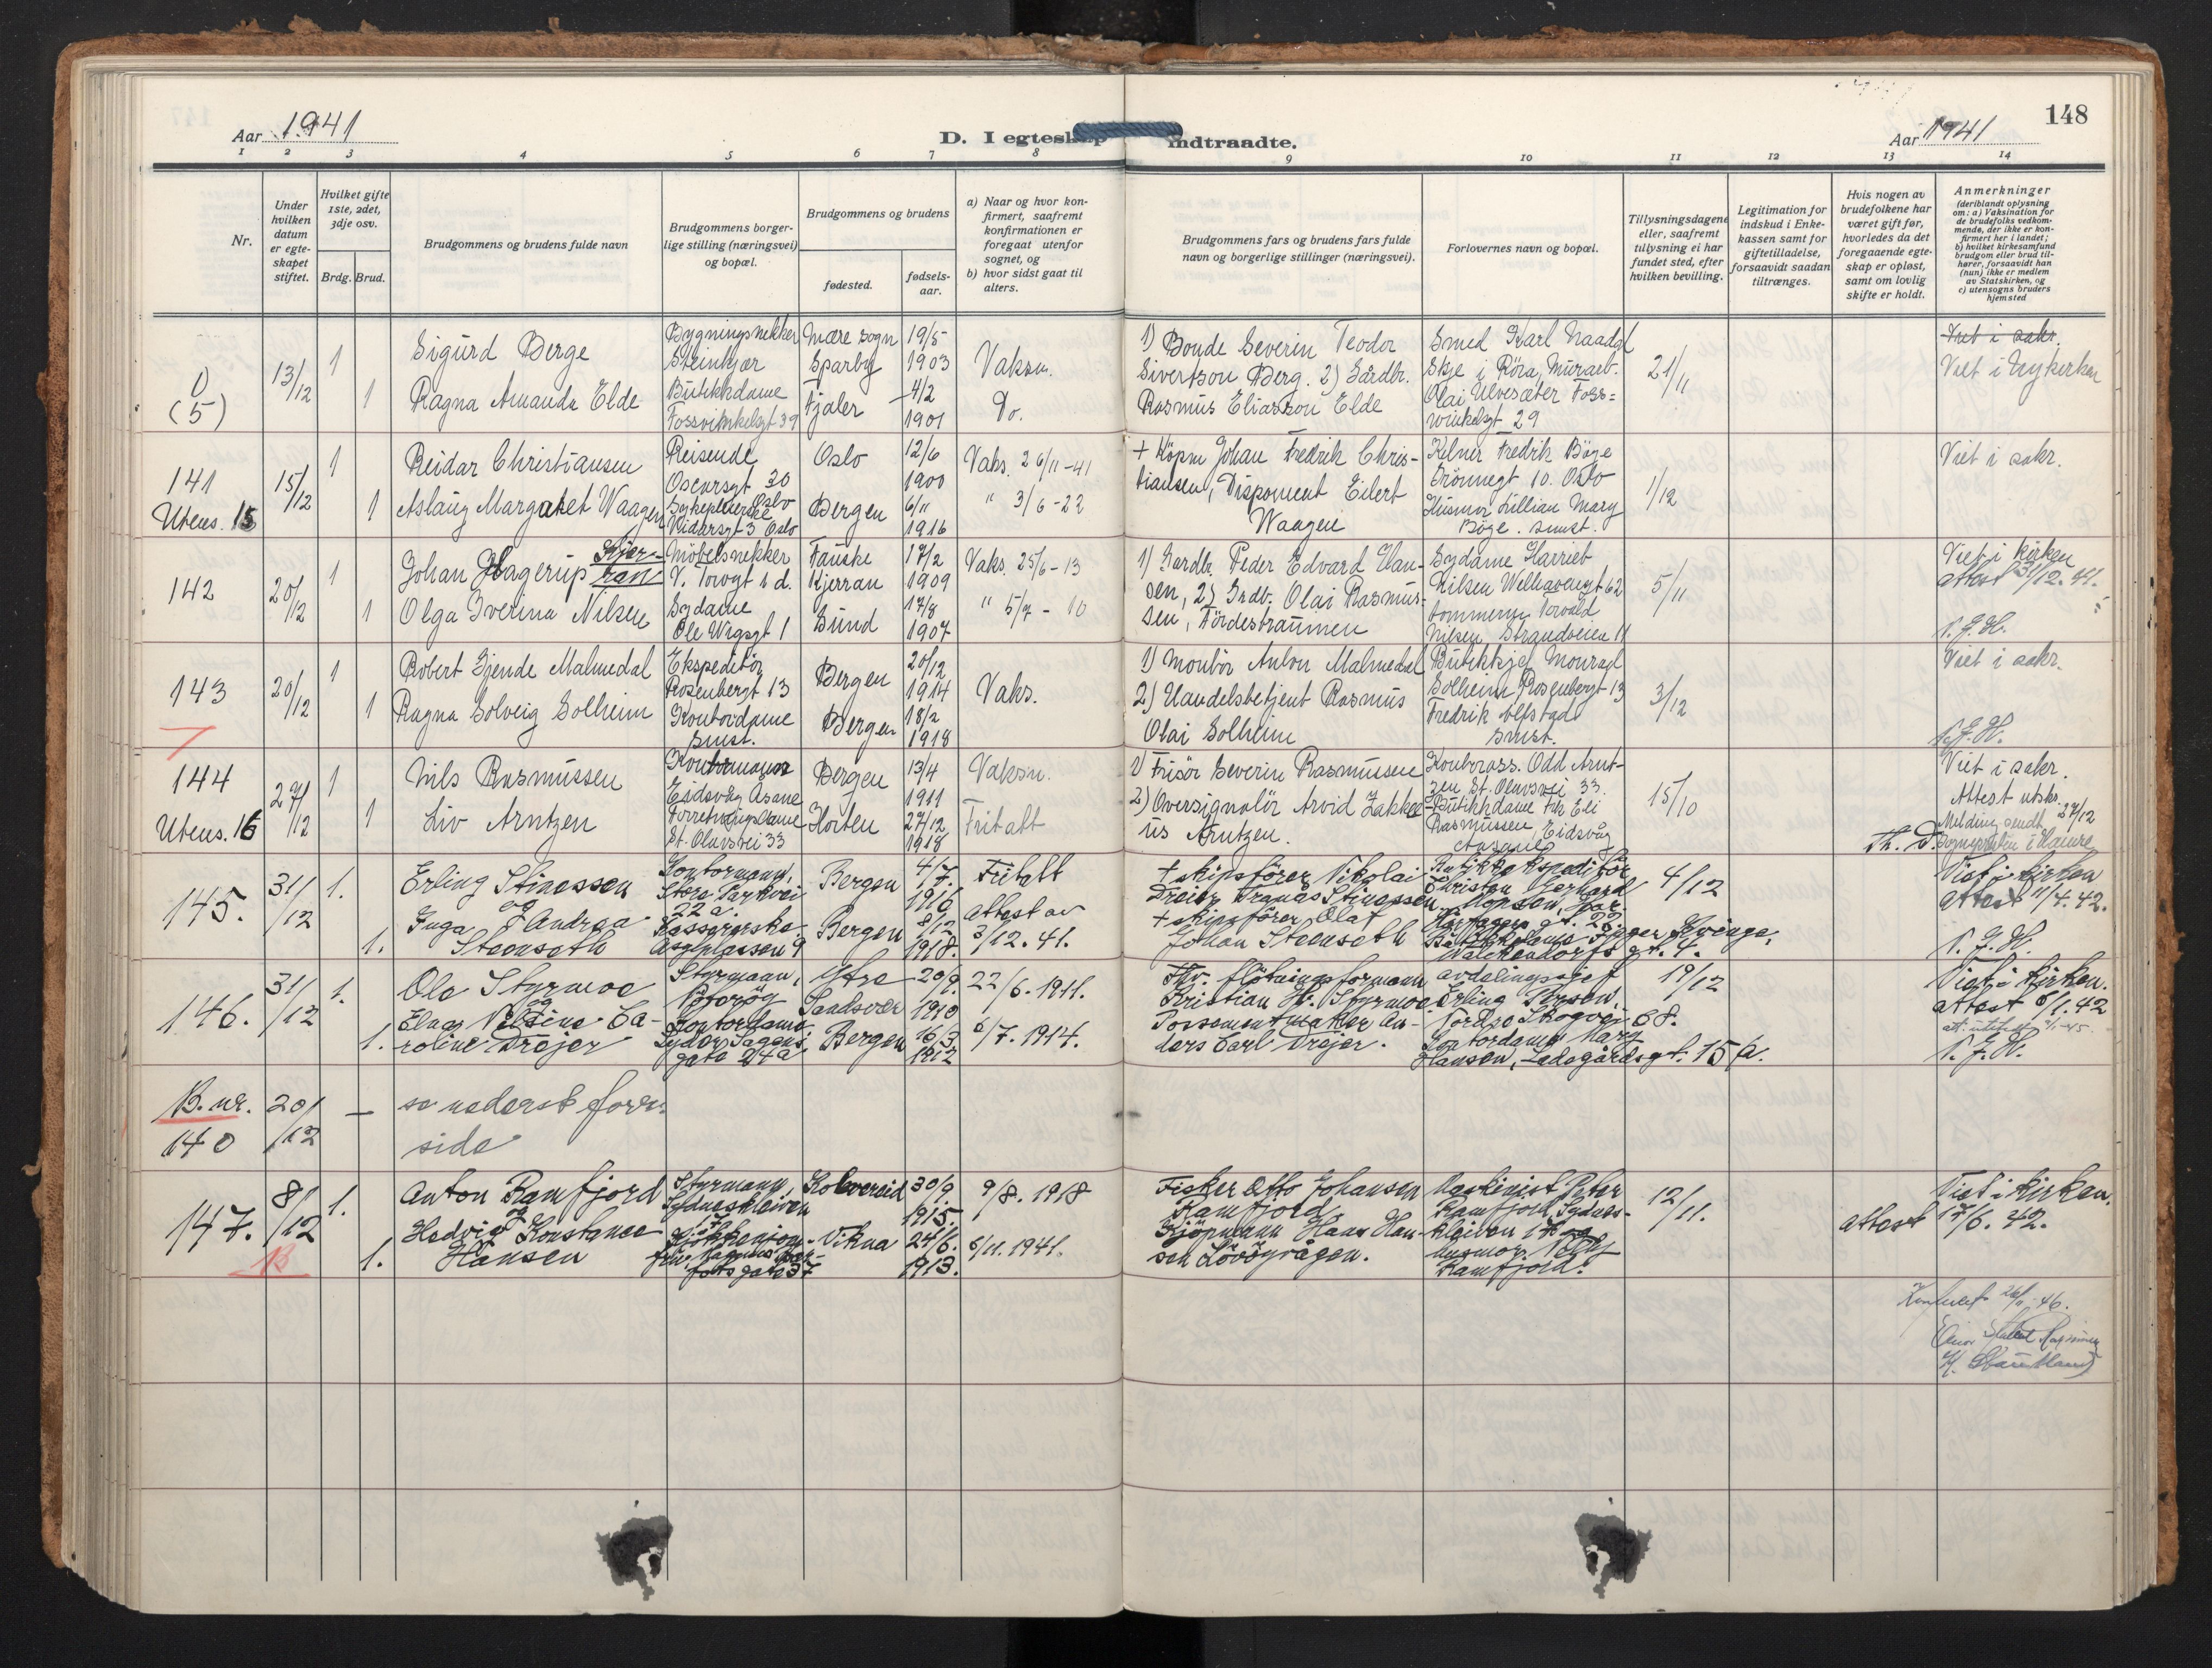 Aar 1941
D. I egteskap indtraadte.
Aar 1941
148
1 2 3 4 5 6 7 8 9 10 11 12 13 14
Nr.
Under hvilken datum er egteskapet stiftet.
Hvilket gifte 1ste, 2det, 3dje osv.
Brdg. Brud.
Brudgommens og brudens fulde navn
Brudgommens borgerlige stilling (næringsvei) og bopæl.
Brudgommens og brudens
fødested.
fødselsaar.
a) Naar og hvor konfirmert, saafremt konfirmationen er foregaat utenfor sognet, og
b) hvor sidst gaat til alters.
Brudgommens fars og brudens fars fulde navn og borgerlige stillinger (næringsvei).
Forlovernes navn og bopæl.
Tillysningsdagene eller, saafremt tillysning ei har fundet sted, efter hvilken bevilling.
Legitimation for indskud i Enkekassen samt for giftetilladelse, forsaavidt saadan tiltrænges.
Hvis nogen av brudefolkene har været gift før, hvorledes da det foregaaende egteskap er opløst, samt om lovlig skifte er holdt.
Anmerkninger (deriblandt oplysning om: a) Vaksination for de brudefolks vedkommende, der ikke er konfirmert her i landet; b) hvilket kirkesamfund brudgom eller brud tilhører, forsaavidt han (hun) ikke er medlem av Statskirken, og c) utensogns bruders hjemsted
(5)
13/12
1
Sigurd Berge
Bygningsnekker Steinkjær
Mære sogn Sparby
19/5 1903
Vaksn.
1
Ragna Amanda Elde
Butikkdame Fossvinkelsgt 39
Fjaler
4/2 1901
Do.
1) Bonde Severin Teodor
Sivertson Berg. 2) Gårdbr.
Rasmus Eliasson Elde
Smed Karl
Skje i Röra, Murarb.
Olai Ulvesæter Foss-
winkelsgt 29
21/11
Viet i sakr.
Viet i Nykirken
141
Utens. 15
15/12
1
Reidar Christiansen
Reisende Oscarsgt 30 Oslo
Oslo
12/6 1900
Vaks. 26/11-41
1
Aslaug Margaret Waagen
Sykepleierske Vidarsgt 3 Oslo
Bergen
6/11 1916
" 3/6-22
+ Köpm Johan Fredrik Chris-
tiansen, Disponent Eilert
Waagen
Kelner Fredrik Böge
Grönnegt 10. Oslo
Husmor Lillian Mary
Böge. smst.
1/12
Viet i sakr.
142
20/12
1
Johan Hagerup Kjerran
Möbelsnekker V. Torvgt 1 d.
Fauske Kjerran
17/2 1909
Vaks. 25/6-13
1
Olga Iverina Nilsen
Sydame Ole Wigsgt 1
Sund
17/8 1907
" 5/7 - 10
1) Gardb. Peder Edvard Han-
sen, 2) Grdb. Olai Rasmus-
sen, Fördestraumen
Sydame Harriet
Nilsen Welhavensgt 62
Torvald
Nilsen, Strandveien 11
5/11
Viet i kirken
attest 31/12.41.
P. J. H.
143
20/12
1
Robert Gjende Malmedal
Ekspeditör Rosenbergt 13
Bergen
20/12 1914
Vaks.
1
Ragna Solveig Solheim
Kontordame smst.
Bergen
18/2 1918
1) Montör Anton Malmedal
2) Handelsbetjent Rasmus
Olai Solheim
Butikksj. Monrad
Solheim Rosenbergt 13
Fredrik Alfstad
smst.
3/12
Viet i sakr.
P. J. H.
144
Utens. 16
27/12
1
Nils Rasmussen
Kontormann Eidsvåg Åsane
Bergen
13/4 1911
Vaksn.
1
Liv Arntzen
Forretningsdame St. Olavsvei 33
Horten
27/12 1918
Fritatt
1) Frisör Severin Rasmussen
2) Oversignalör Arvid Zakke-
us Arntzen.
Kontorass. Odd Arnt-
zen St. Olavsvei 33.
Butikkdame frk Eli
Rasmussen, Eidsvåg
15/10
Viet i sakr.
Attest utskr.
Melding sendt 27/12
Sognepresten i Hamre
145.
31/12
1.
Erling Stinessen
Kontormann, Store Parkvei 22 a.
Bergen
4/7. 1916
Fritatt
og
1.
Inga Andrea Steenseth
Kassererske. Asylplassen 9
Bergen
8/12 1918.
attest av 3/12.41.
+ skipsförer Nikolai
Dreier Tranås Stinessen.
+ skipsförer Olaf
Johan Steenseth
Butikkekspeditör
Christen Gerhard
Monsen,
gt. 22.
Butikkdame Kvinge,
Walckendorfs gt. 4.
4/12
Viet i kirken
attest 11/4.42.
P. J. H.
146.
31/12
1.
Ole Styrmoe
Styrmann, Nöteröy
Ytre Sandsvær
20/9. 1910
22/6.1911.
og
1.
Elna Nelsine Ca-
roline Dreyer
Kontordame. Lyder Sagens gate 24 a
Bergen
16/3 1912
6/7.1914.
Fhv. flötningsformann
Kristian H. Styrmoe.
Possementmaker An-
ders Carl Dreyer.
avdelingssjef
Erling Persen,
Nordre Skogvei 68.
Kontordame Mary
Hansen, Ladegårdsgt. 15 a.
19/12
Viet i kirken.
attest 8/1.42
P. J. H.
B. nr. 140
20/12
—
se nederst forr.
side
147.
B
8/12
1.
Anton Ramfjord
Styrmann, Sydneskleiven 17
Kolvereid
30/9. 1915.
9/8. 1918
og
1.
Hedvig Konstance
Hansen
gate 37
Vikna
24/6. 1913.
6/11.1941.
Fisker Otto Johansen
Ramfjord.
Kjöpmann Hans Han-
sen Lövöyvågen.
Maskinist Peter
Ramfjord, Sydnes-
kleiven 17 og
Husmor Nelly
Ramfjord.
12/11.
Viet i kirken.
attest 17/6. 42.
Konferert 26/1-46.